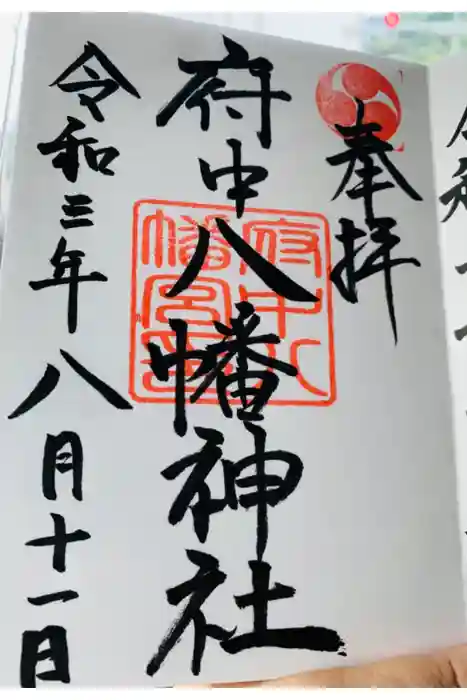 奉拝
府中八幡神社
府中八
幡宮璽
令和三年八月十一日